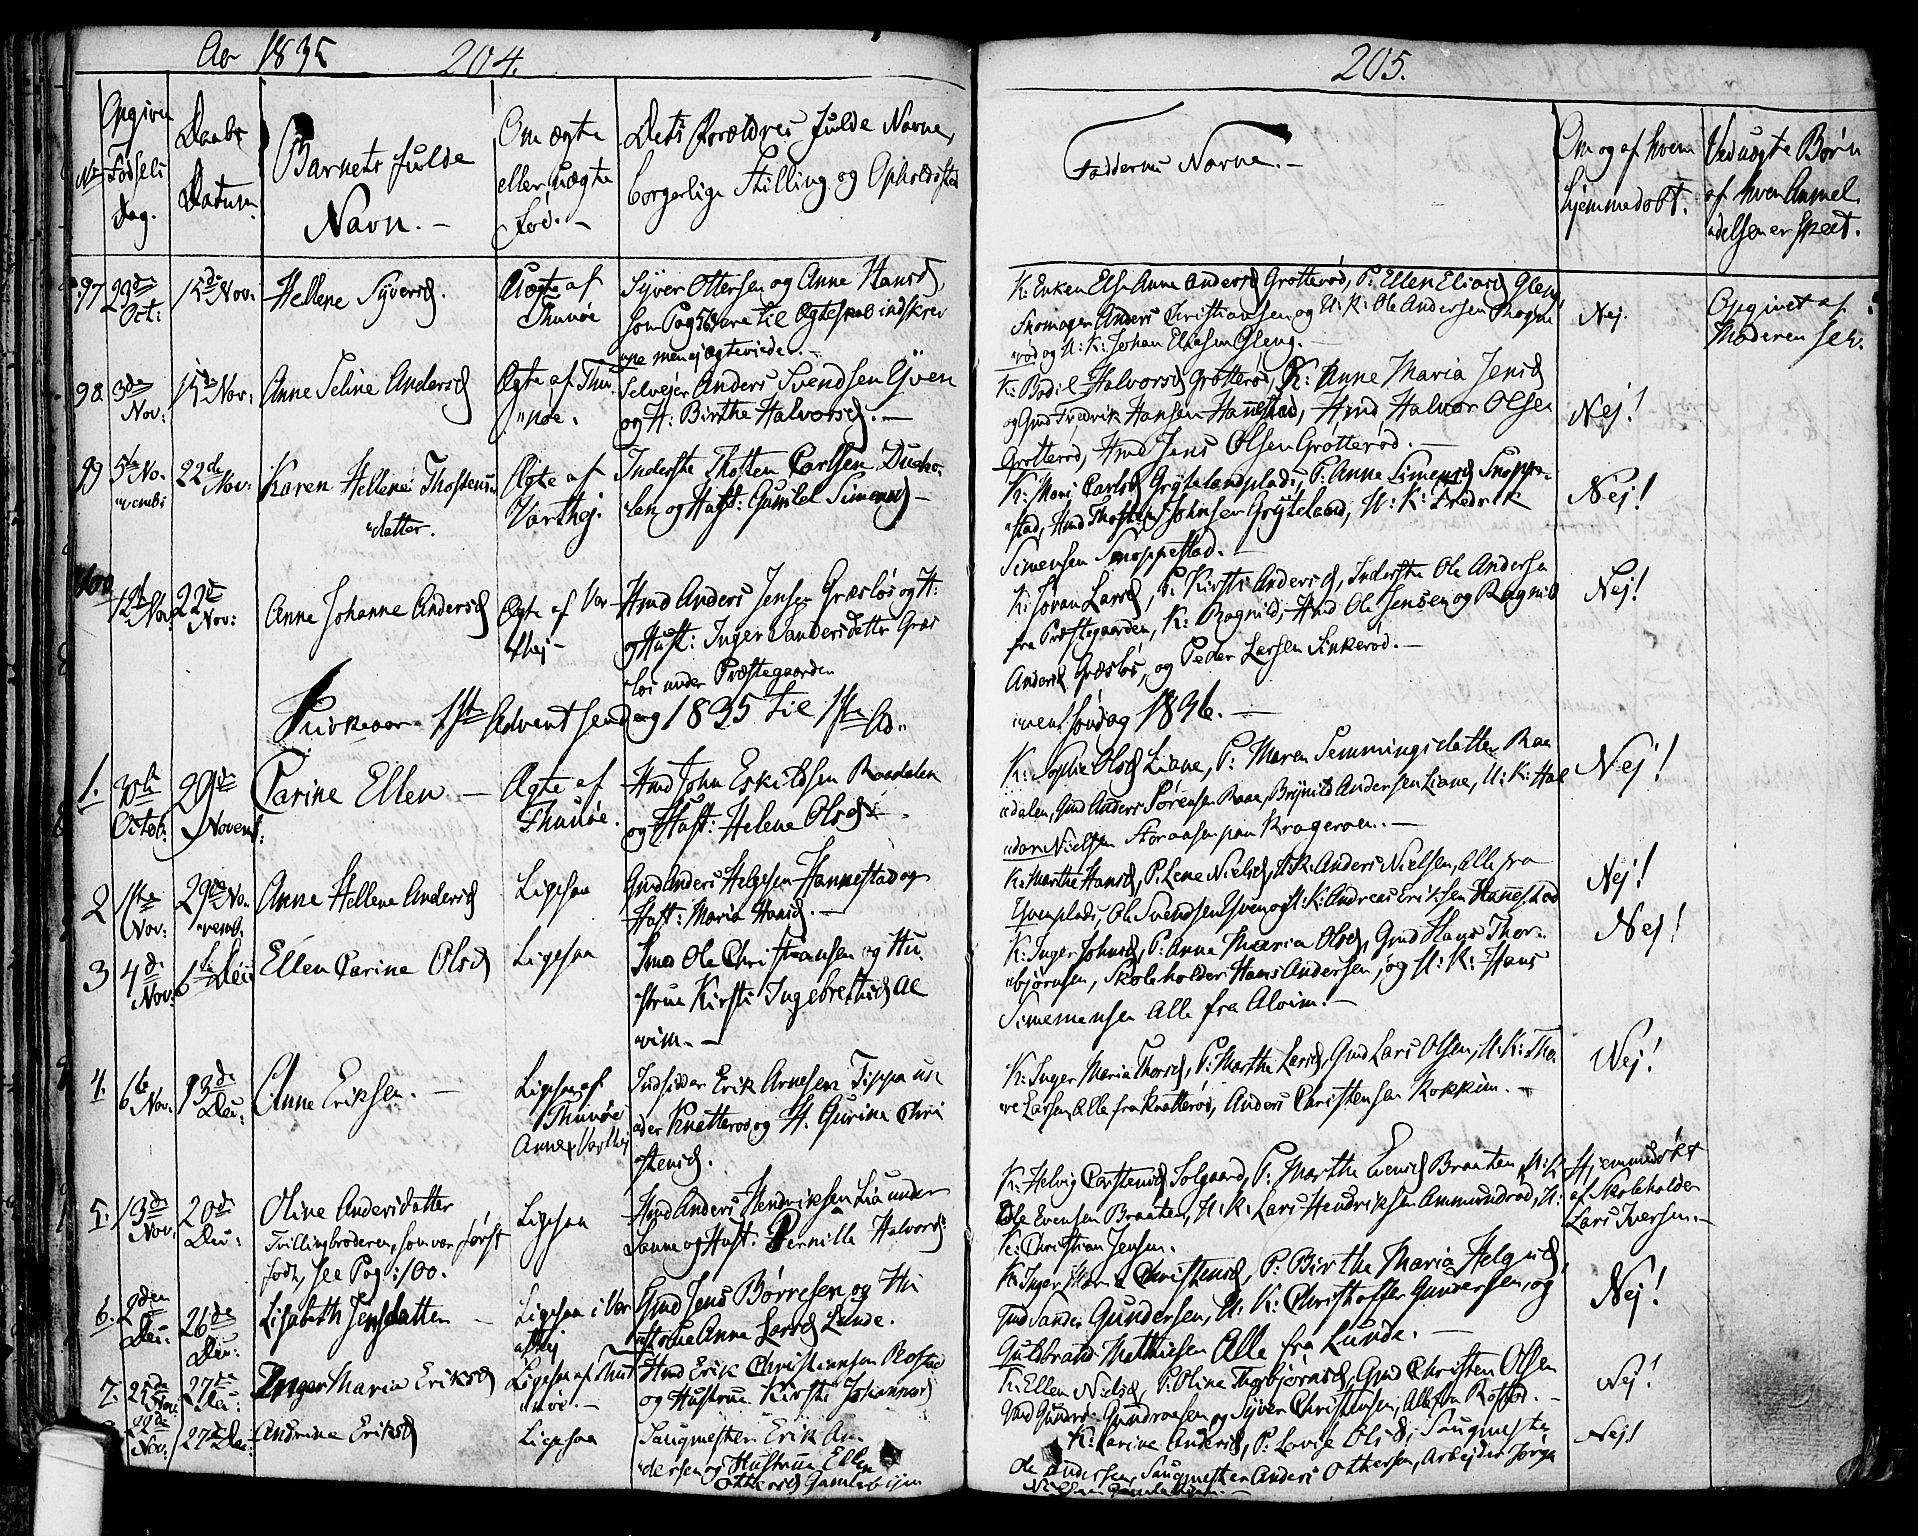 Aar 1835 204.
No
Opgiven Fødsels Dag.
Daabs Datum.
Barnets fulde Navn.-
Om ægte eller uægte Fød.-
Dets Forældres fulde Navne, borgerlige Stilling og Opholdssted
97 29de Oct: 15de Nov: Hellene Syversd. Uægte af Thunøe
Syver Ottersen og Anne Hansd,
som Pag
til Ægteskab indskrev
"ne men ej ægteviede.-
98 3de Nov: 15de Nov: Anne Seline Andersd Ægte af Thu "nøe.
Selvejer Anders Svendsen Yven
og H: Birthe Halvorsd.-
99 5te No "vemb: 22de Nov: Karen Hellene Thostens "datter. Ægte af Varthej.
Inderste Thosten Carlsen
"len og Hust: Gunild Simensd-
100 12te Nov: 22de Nov: Anne Johanne Andersd Ægte af Var "thej-
Hmd Anders Jensen Græsløs og H:
og Hust: Inger Sandersdatter Græs
"løs under Præstegaarden
Kirkeaar 1ste Advent Søndag 1835 til 1ste Ad"
1. 30te Octob: 29de Novemb: Carine Ellen - Ægte af Thunøe.
Hmd John Eskildsen Raadalen
og Hust: Helene Olsd.
2 1ste Nov: 29de No "vemb. Anne Hellene Andersd Ligesaa
Gmd Anders Helgesen Hannestad og
Hust: Maria Hansd.-
3 4de Nov: 6te Dec: Ellen Carine Olsd Ligesaa
Ole Christiansen og Hu
"strue Kirsti Ingebrethsd Al
"vim.-
4. 6te Nov: 13de Dec: Anne Eriksen.- Ligesaa af Thunøe Annex Varthej
Indsidder Erik Arnesen Tippa un
"der Knatterød og H. Gurine Chri
"stensd.
5. 13de Nov: 20de Dec: Oline Andersdatter
Tvillingbroderen, som var først
født, see Pag: 100.
Ligesaa
Hmd Anders Hendriksen Lia under
Sanne og Hust: Pernille Halvorsd:
6. 2den Dec: 26de Dec: Lisabeth Jensdatter - Ligesaa i Var "thej
Gmd Jens Børresen og Hu
"strue Anne Larsd Lunde.
7. 25de Nov: 27de Dec: Inger Maria Eriksd Ligesaa af Thu "nøe.-
Hmd Erik Christiansen Rostad
og Hustrue Kirsti Johannesd
22de Nov: 27de Dec: Andrine Eriksd Ligesaa
Saugmester Erik An
"dersen og Hustrue Ellen
Ottersd Gamlebyen
205.
Faddernes Navne.-
Om og af hvem hjemmedøbt.
Ved uægte Børn af hvem Anmel "delsen er skeet.
K: Enken Else Anne Andersd Grotterød, P: Ellen Eliasd Gleng,
Skomager Anders Christiansen og U: K: Ole Andersen
"rød og U: K: Johan Eliesen Gleng.-
Nej.
Opgivet af Moderen selv.
K: Bodil Halvorsd Grotterød, K: Anne Maria Jensd
og Gmd Fredrik Hansen Hannestad, Hmd Halvor Olsen
Grotterød, Hmd Jens Olsen Grotterød.-
Nej!
K: Mari Carlsd Gryteland, P: Anne Simensd Snoppe-
"stad, Hmd Thosten Johnsen Gryteland, U: K: Fredrik
Simensen Snoppestad.-
Nej!
K: Joran Larsd, P: Kirsti Andersd, Inderste Ole Andersen
fra Præstegaarden, K: Ragnild, Hmd Ole Jensen og Ragnild
Andersd Græsløs, og Peder Larsen Sinkerød.-
Nej!
"vent Søndag 1836.-
K: Sophie Olsd Liane, P: Maren Semmingsdatter Raa
"dalen, Gmd Anders Sørensen Raae, Brynild Andersen Liane, U: K: Hal
"dor Nielsen Storaasen paa Kragerøen.-
Nej!
K: Marthe Hansd, P: Lene Nielsd, U: K: Anders Nielsen, Alle fra
Yvenplads, Ole Svendsen Yven og U: K: Andreas Eriksen Hannestad
Nej!
K: Inger Johnsd, P: Anna Maria Olsd, Gmd Hans Thor-
"bjørnsen, Skoleholder Hans Andersen, og U: K: Hans
Simensen Alle fra Alvim.-
Nej!
K: Inger Maria Thorsd, P: Marthe Larsd, Gmd Lars Olsen, U: K: Tho
"re Larsen, Alle fra Knatterød, Anders Christensen Kokkim.-
Nej!
K: Helvig Carstensd Solgaard, P: Marthe Evensd Braaten, U: K:
Ole Evensen Braaten, U: K: Lars Hendriksen Ammundrød, U:
K: Christian Jensen.
Hjemmedøbt af Skoleholder Lars Iversen.-
K: Inger Maria Christensd, P: Birthe Maria Helgesd,
Gmd Sander Gundersen, U: K: Christoffer Gundersen, og
Gulbrand Mathisen Alle fra Lunde.-
Nej!
K: Ellen Nielsd, P: Oline Thorbjørnsd, Gmd Christen Olsen
Gmd Gunder Gundersen og Syver Christensen, Alle fra Rostad.-
Nej!
K: Karine Andersd, P: Lovise Olsd, Saugmester
Ole Andersen, Saugmester Anders Ottersen, Arbejder Jørgen
Nielsen Gamlebyen.-
Nej!